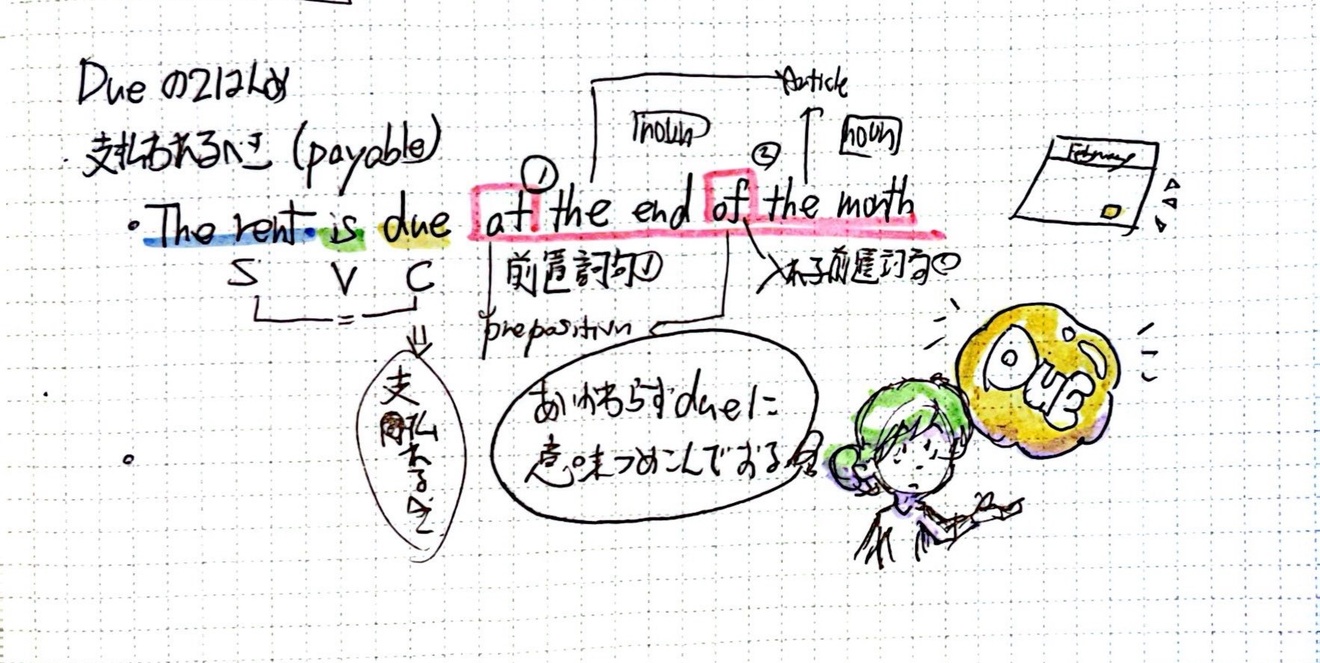 Due の2はんめ
支払われるべき (payable)
Article
noun
noun
① ②
・The rent is due at the end of the month
S V C
=
前置詞句①
入れ子前置詞句②
preposition
支払われるべき
あいかわらずdueに
意味つめこんでおる
February
DUE